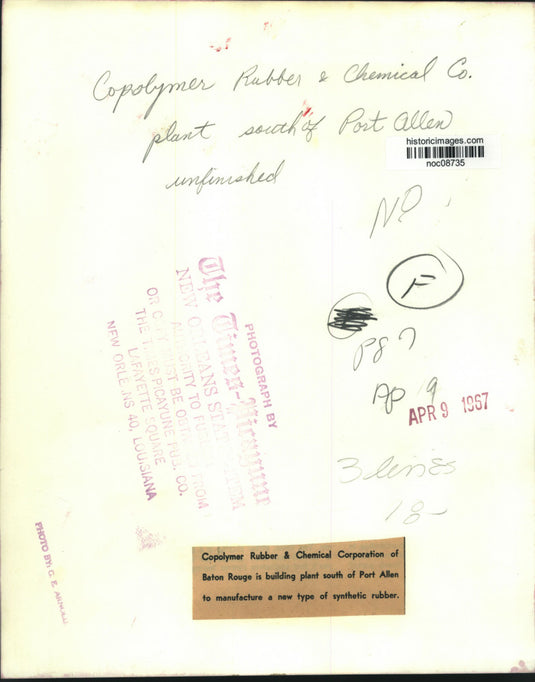 Copolymer Rubber & Chemical Co.
plant south of Port Allen
unfinished
historicimages.com
noc08735
NP
F
Pg 7
Ap 9
APR 9 1967
3 lines
18-
PHOTOGRAPH BY
The Times-Picayune
NEW ORLEANS STATES-ITEM
AUTHORITY TO
OR COPY MUST BE FROM
THE TIMES PICAYUNE PUB. CO.
LAFAYETTE SQUARE
NEW ORLEANS 40, LOUISIANA
PHOTO BY: G. E. ARNOLD
Copolymer Rubber & Chemical Corporation of
Baton Rouge is building plant south of Port Allen
to manufacture a new type of synthetic rubber.